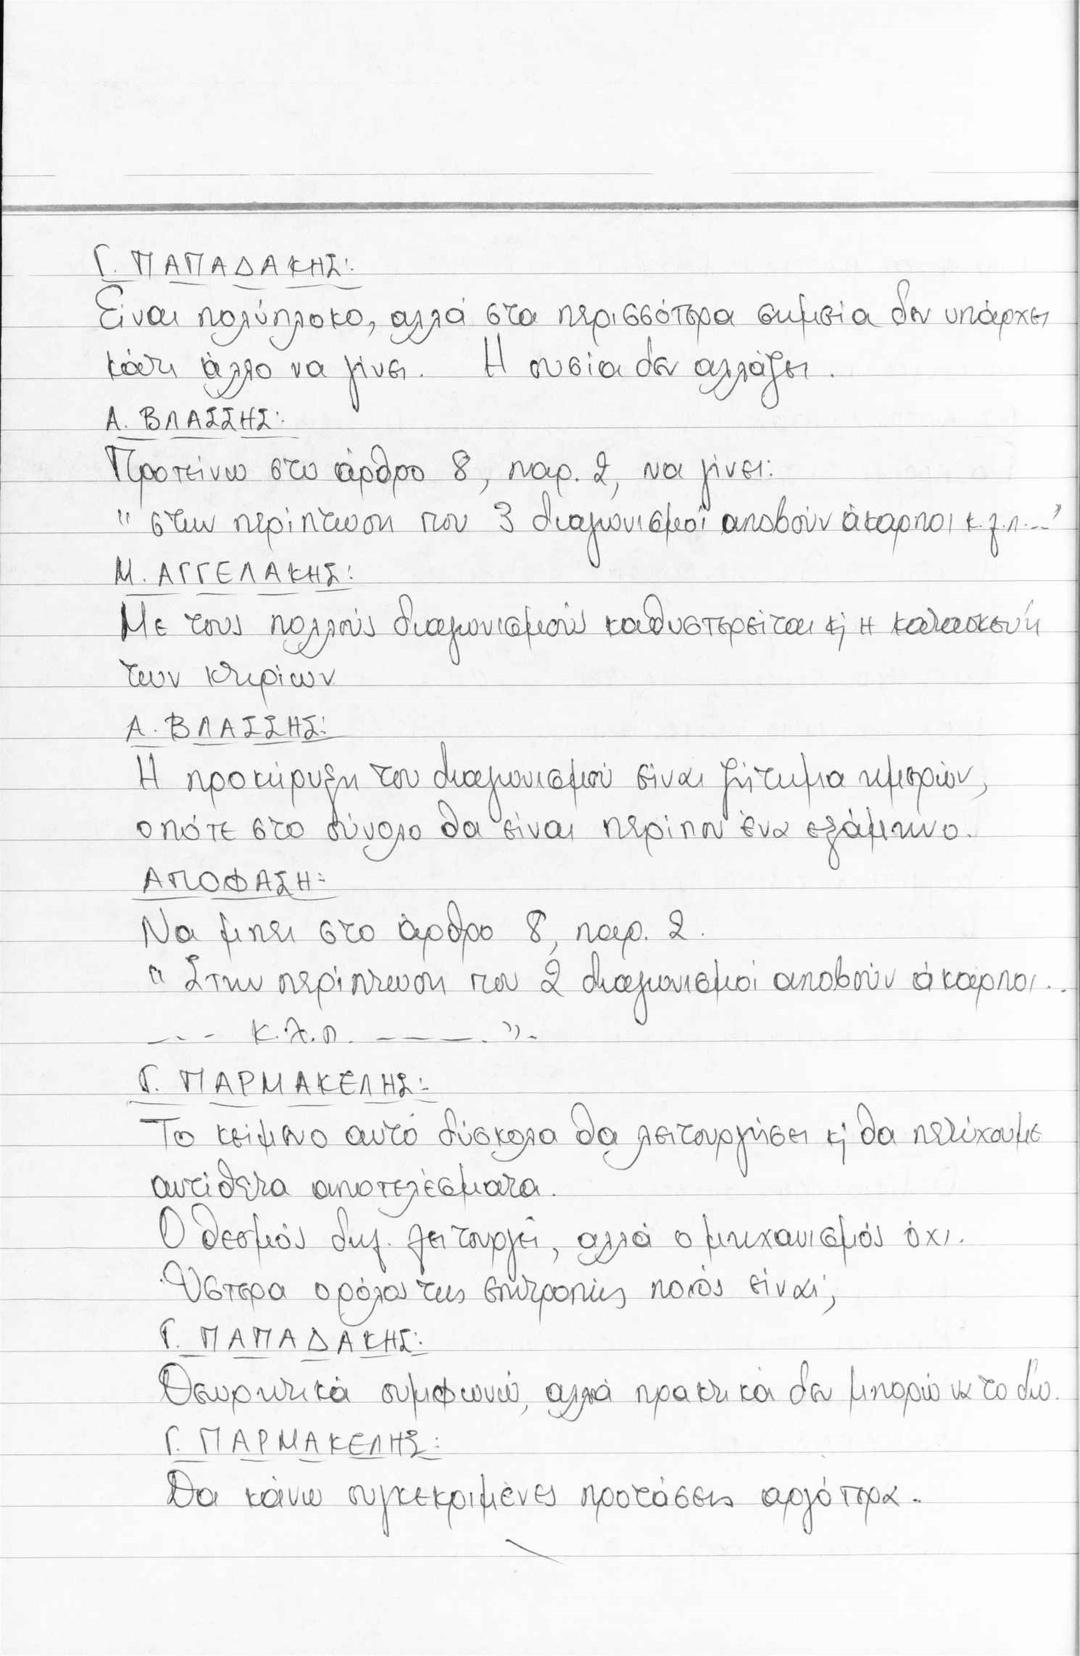 Γ. ΠΑΠΑΔΑΚΗΣ:
Είναι πολύπλοκο, αλλά στα περισσότερα σημεία δεν υπάρχει
κάτι άλλο να γίνει. Η ουσία δεν αλλάζει.
Α. ΒΛΑΣΣΗΣ:
Προτείνω στο άρθρο 8, παρ. 2, να γίνει:
"στην περίπτωση που 3 διαγωνισμοί αποβούν άκαρποι κ.λ.π..."
Μ. ΑΓΓΕΛΑΚΗΣ:
Με τους πολλούς διαγωνισμούς καθυστερείται κ̓ η κατασκευή
των κτιρίων
Α. ΒΛΑΣΣΗΣ:
Η προκύρυξη του διαγωνισμού είναι ζήτημα ημερών,
οπότε στο σύνολο θα είναι περίπου ένα εξάμηνο.
ΑΠΟΦΑΣΗ:
Να μπει στο άρθρο 8, παρ. 2.
"Στην περίπτωση που 2 διαγωνισμοί αποβούν άκαρποι...
--- κ.λ.π. ----".
Γ. ΠΑΡΜΑΚΕΛΗΣ:
Το κείμενο αυτό δύσκολα θα λειτουργήσει κ̓ θα πετύχουμε
αντίθετα αποτελέσματα.
Ο θεσμός δημ. λειτουργεί, αλλά ο μηχανισμός όχι.
Ύστερα ο ρόλος της επιτροπής ποιός είναι;
Γ. ΠΑΠΑΔΑΚΗΣ:
Θεωρητικά συμφωνώ, αλλά πρακτικά δεν μπορώ να το δω.
Γ. ΠΑΡΜΑΚΕΛΗΣ:
Θα κάνω συγκεκριμένες προτάσεις αργότερα.